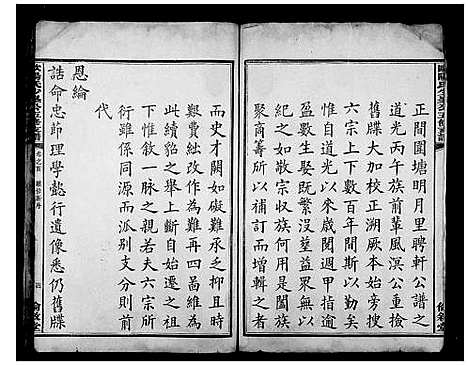 正間圍塘明月里聘軒公譜之
道光丙午族前輩風溟公重檢
舊牒大加校正溯厥本始旁搜
六宗上下數百年間斯以勤矣
惟自道光以來歲閱週甲指逾
盈數生娶既繁登造畀無以
紀之如敬宗收族何用是闔族
聚商籌所以補訂而增輯之者
而史才闕如礙難承乏抑且時
艱費絀改作為難再四酌維為
繼貂之舉上斷自始遷之祖
下惟敘一脈之親若夫六宗所
衍雖系同源而派别支分則前
代
恩綸
誥命忠節理學懿行遺像悉仍舊牒
卷之首
四
倫敘堂